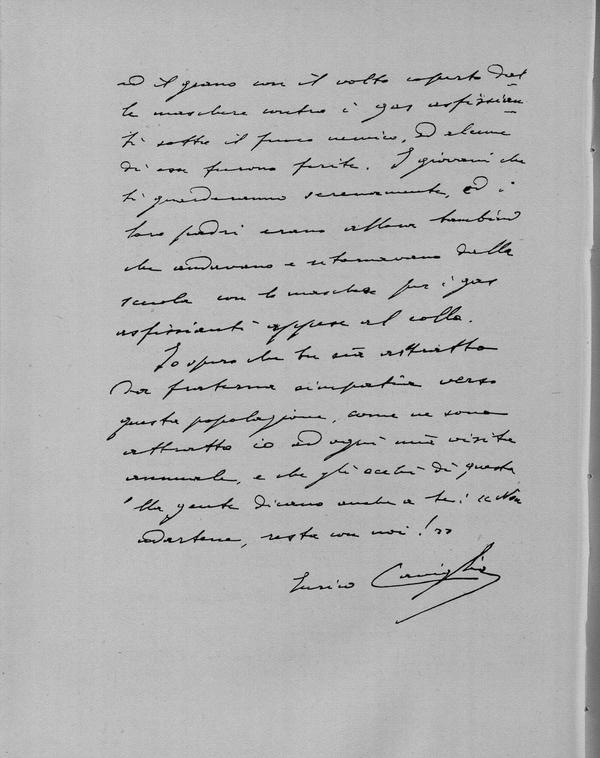 ed il grano con il volto coperto dal
le maschere contro i gas asfissian
ti sotto il fuoco nemico, ed alcune
di esse furono ferite. I giovani che
ti guarderanno serenamente, ed i
loro padri erano allora bambini
che andavano e ritornavano dalla
scuola con le maschere per i gas
asfissianti appese al collo.
Io spero che tu sia attratto
da fraterna simpatia verso
questa popolazione, come ne sono
attratto io ad ogni mia visita
annuale, e che gli occhi di questa
gente dicano anche a te: "Non
andartene, resta con noi!"
Enrico Caviglia